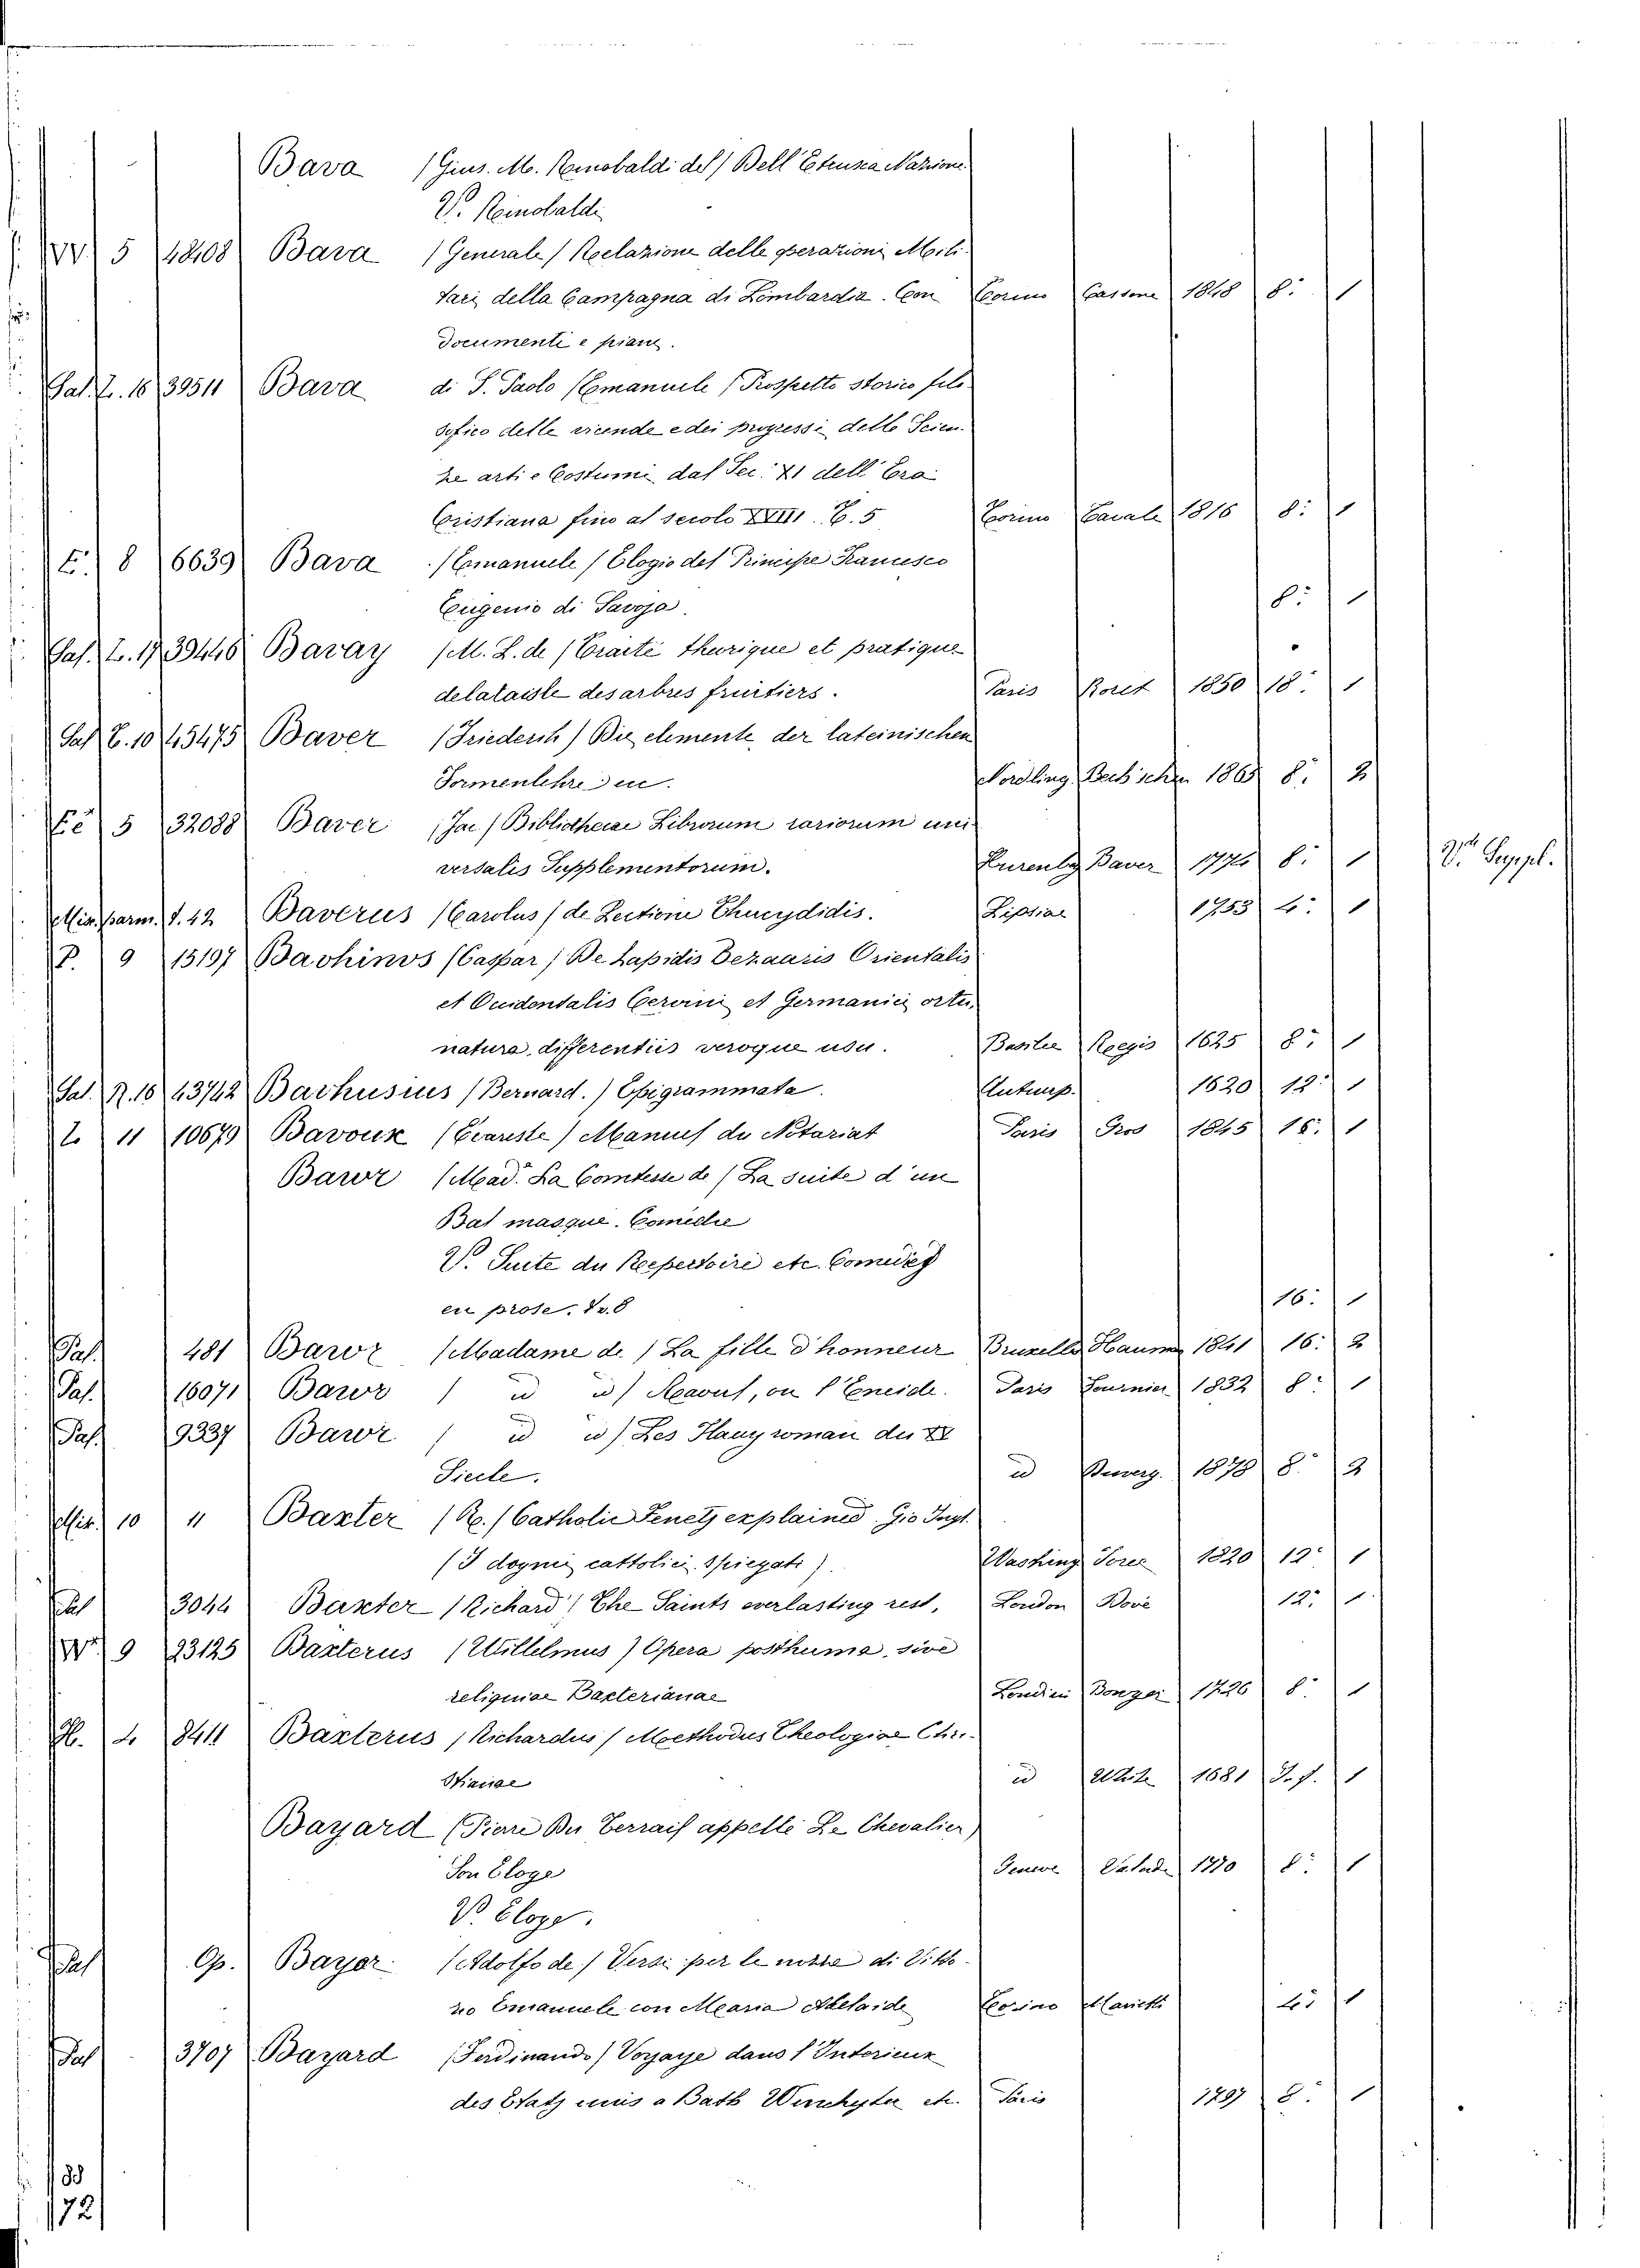 Bava (Gius. M. Rinobaldi del) Bell' Etrusca Nazione.
V. Rinobaldi
VV 5 42108 Bava (Generale) Relazione delle operazioni Mili-
tari della Campagna di Lombardia. Con Torino Cassone 1848 8: 1
documenti e piani.
Sal. L. 16 39511 Bava di S. Paolo (Emanuele) Prospetto storico filo-
sofico delle vicende e dei progressi delle Scien-
ze arti e Costumi dal Sec. XI dell' Era
Cristiana fino al secolo XVIII. T. 5 Torino Cavale 1816 8: 1
E. 8 6639 Bava (Emanuele) Elogio del Principe Francesco
Eugenio di Savoja. 8: 1
Sal. L. 17 39446 Bavay (M. L. de) Traité theorique et pratique
de la taille des arbres fruitiers. Paris Roret 1850 18: 1
Sal. E. 10 45475 Baver (Friederich) Die elemente der lateinischen
Formenlehre in. Nordling. Beck'schen 1865 8: 2
Ee 5 32088 Baver (Jac.) Bibliothecae Librorum rariorum uni-
versalis Supplementorum. Nurenbg Baver 1774 8: 1 Vr. Suppl.
Min. parm. t. 42 Baverus (Carolus) de Lectione Thucydidis. Lipsiae 1753 4: 1
P. 9 15197 Bavhinvs (Caspar) De Lapidis Bezaaris Orientalis
et Occidentalis Cervini et Germanici ortu,
natura, differentiis veroque usu. Basilee Regis 1625 8: 1
Sal. R. 16 43742 Bavhusius (Bernard.) Epigrammata. Antuerp. 1620 12: 1
L. 11 10679 Bavoux (Evariste) Manuel du Notariat Paris Gros 1845 16: 1
Bawr (Mad. La Comtesse de) La suite d'un
Bal masque. Comedie
V. Suite du Repertoire etc. Comedies
en prose. T. 8 16: 1
Pal. 481 Bawr (Madame de) La fille d'honneur Bruxelles Hauman 1841 16: 2
Pal. 16071 Bawr ( id id) Raoul, ou l'Eneide. Paris Fournier 1832 8: 1
Pal. 9337 Bawr ( id id) Les Flavy roman du XV
Siecle. id 8: 2
Mir. 10 11 Baxter (R.) Catholic Tenets explained. Gio Ingl.
(I dogmi cattolici spiegati). Washing 1820 12: 1
Pal 3044 Baxter (Richard) The Saints everlasting rest, London Bove 12: 1
9 23125 Baxterus (Willelmus) Opera posthuma, sive
reliquiae Baxterianae Londini 1726 8: 1
H. 4 8411 Baxterus (Richardus) Methodus Theologiae Chri-
stianae id White 1681 1
Bayard (Pierre Du Terrail appellé Le Chevalier)
Son Eloge Geneve 1770 8: 1
V. Eloge.
Pal Op. Bayer (Adolfo de) Versi per le nozze di Vitto-
rio Emanuele con Maria Adelaide Torino 4: 1
Pal 3707 Bayard (Ferdinando) Voyage dans l'Interieur
des Etats unis a Bath Winchester etc. Paris 1797 8: 1